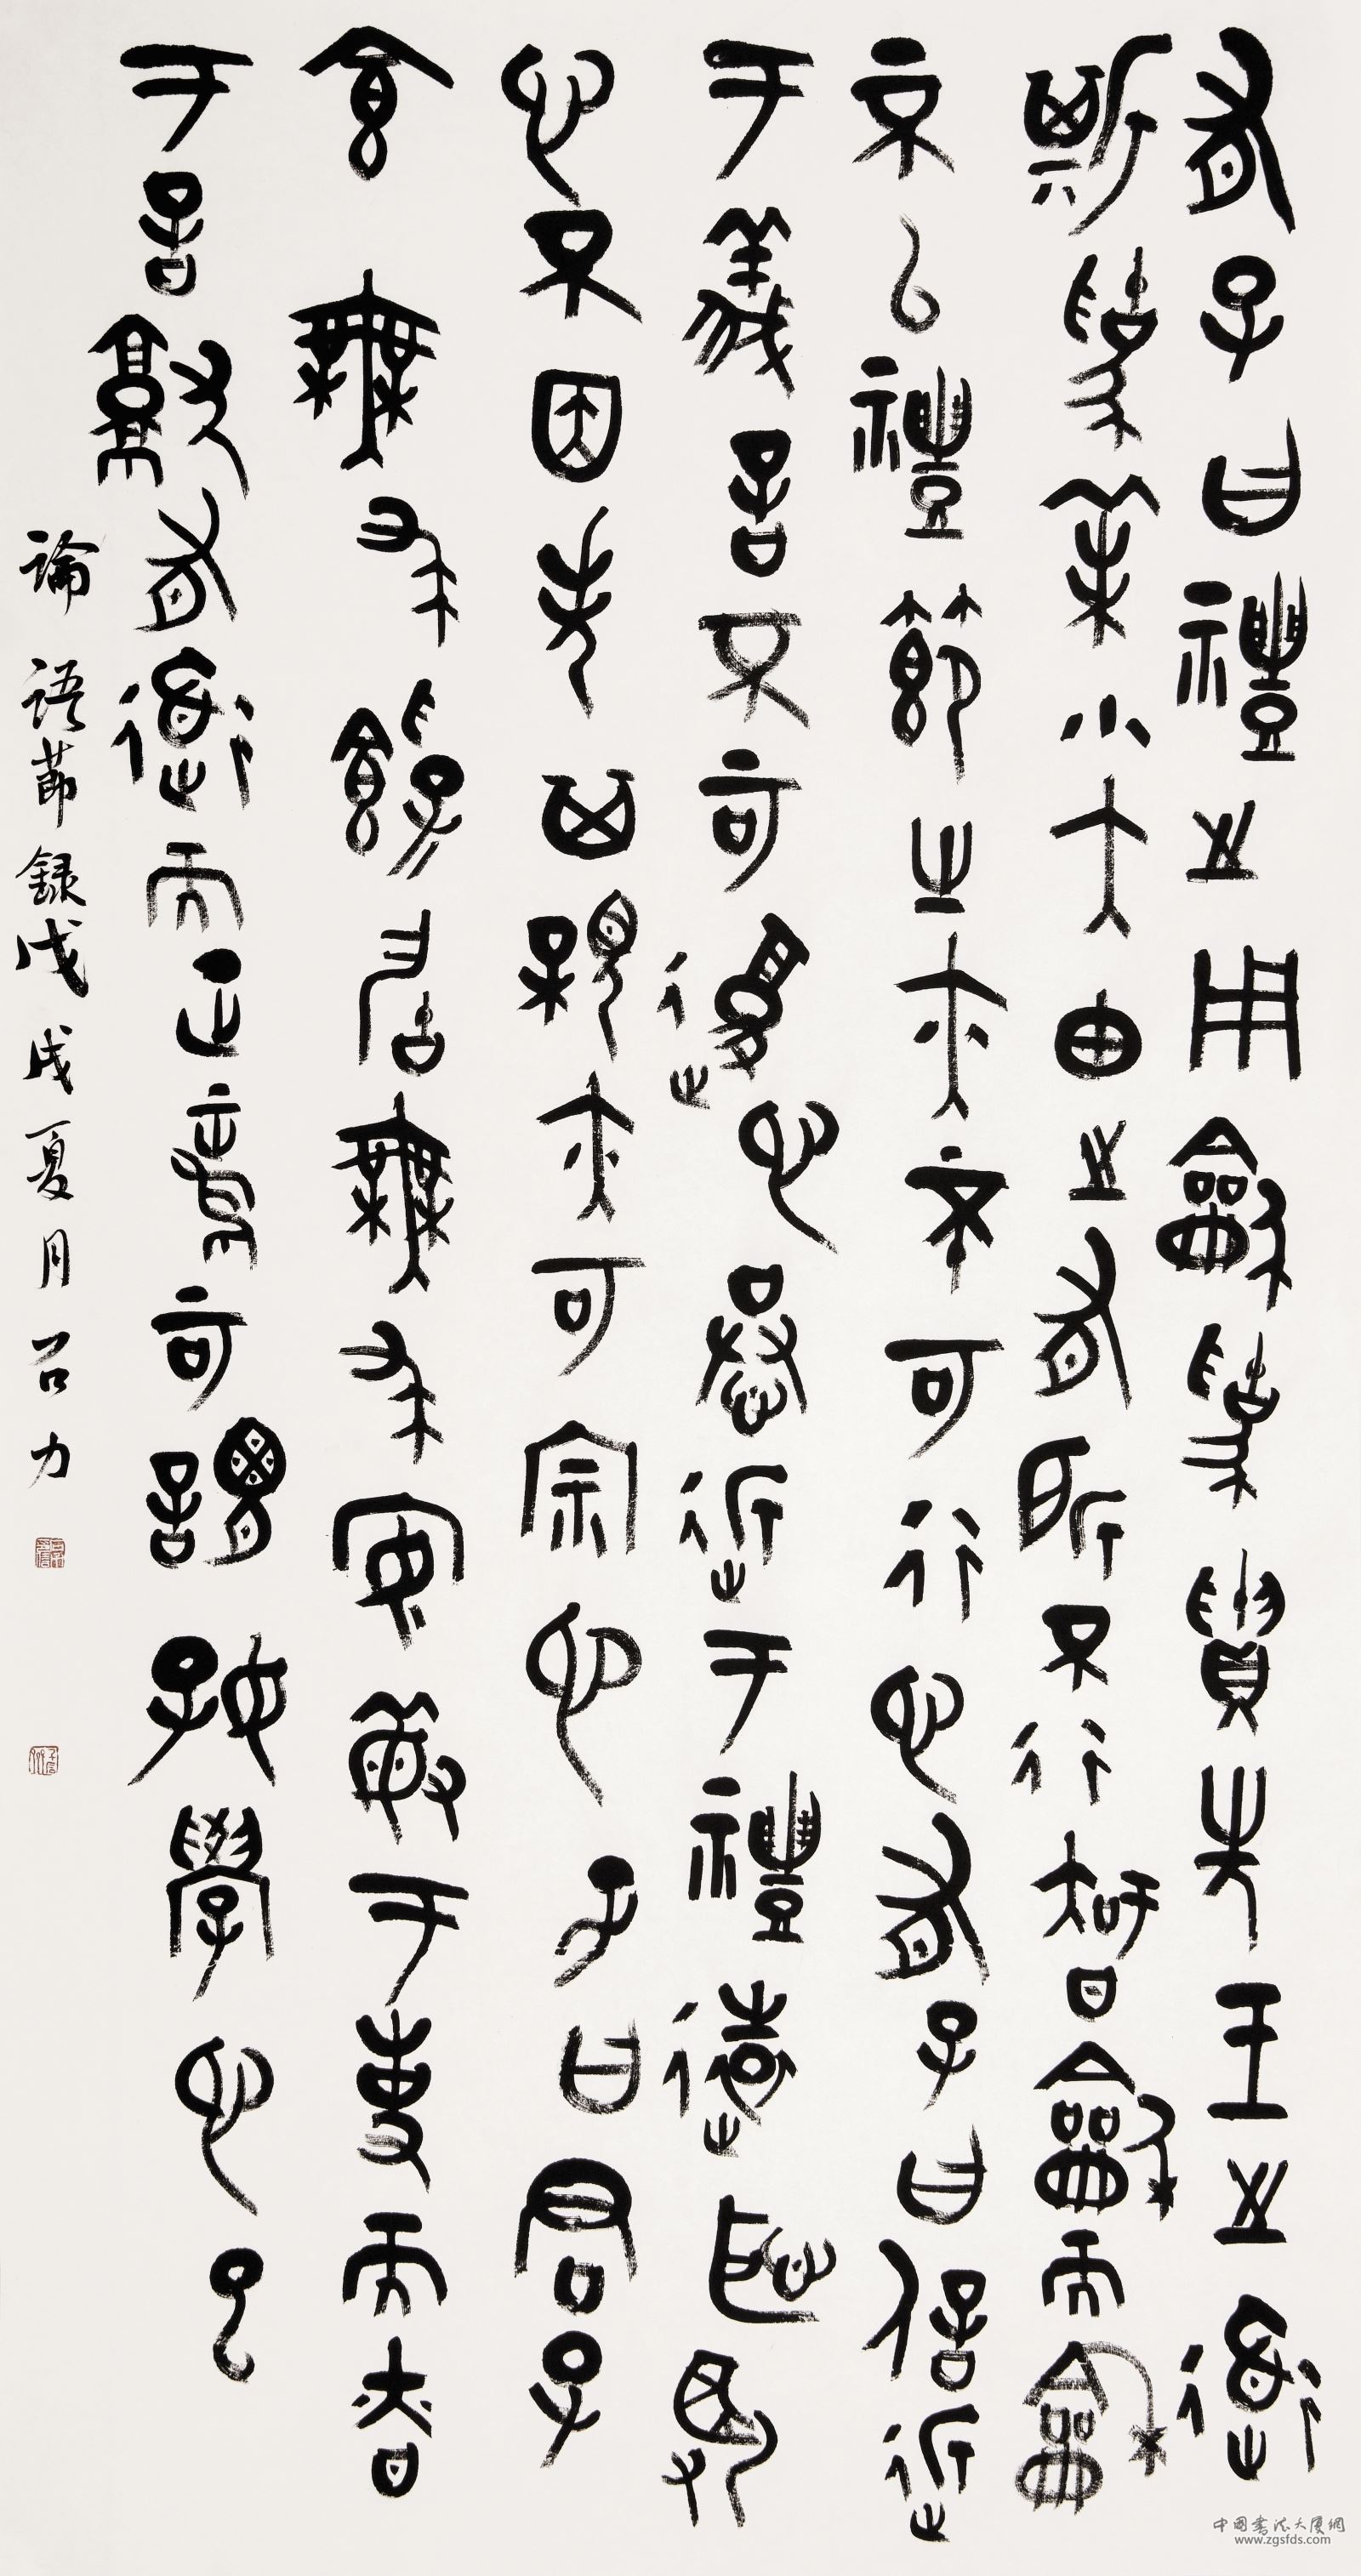 有子曰禮之用龢為貴先王之道
斯為美小大由之有所不行智龢而龢
不以禮節之亦不可行也有子曰信近
于義言不可復也恭近于禮遠恥辱
也不因先其親亦可宗也子曰君子
食無求飽居無求安敏于事而春
于言就有道而正焉可謂好學也已
論語節錄戊戌夏月召力
中國書法大廈網
www.zgsfds.com